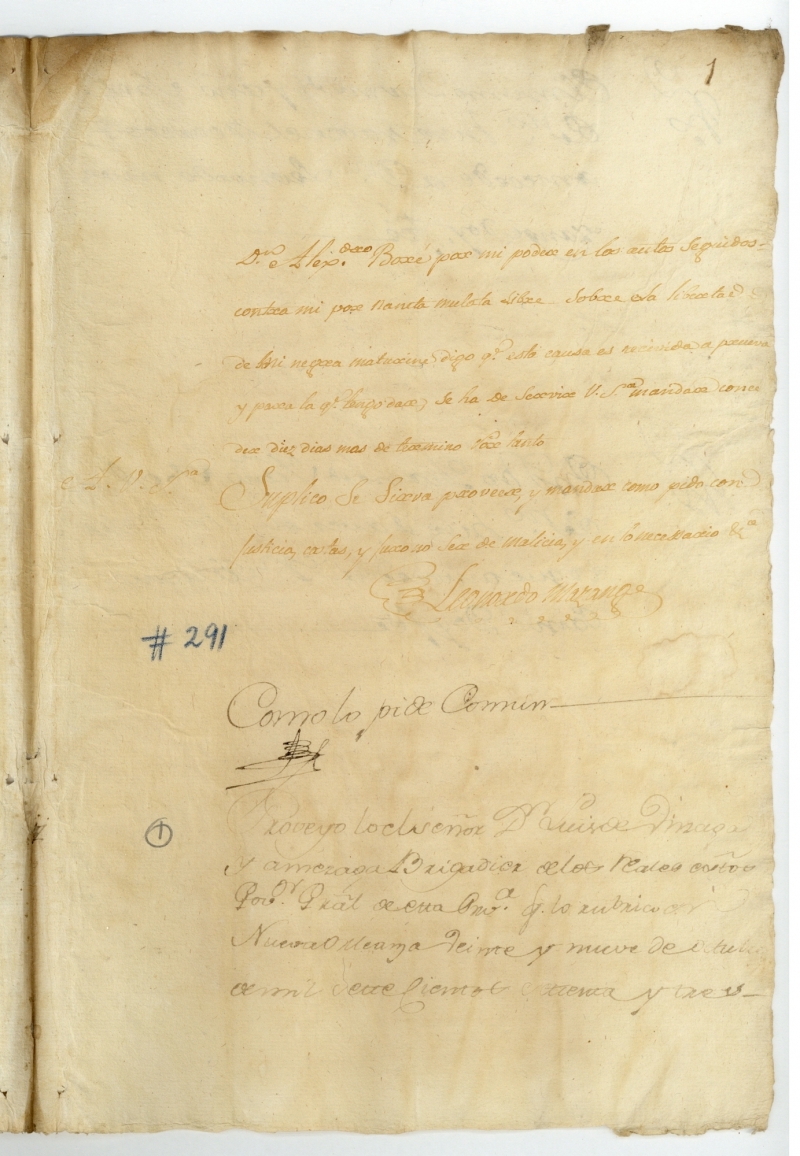 1
D.n Alex.dro Boré por mi poder en los autos seguidos
contra mi por Naneta mulata Libre sobre la libertad
de mi negra maturina digo q.e esta causa es recivida a prueva
y para la q.e tengo dar, se ha de servir V. S.ria mandar conce
der diez dias mas de termino Por tanto
A. V. S.ria Suplico Se Sirva proveer, y mandar como pido con
justicia, costas, y juro no ser de malicia, y en lo necesario &.ra
Leonardo Mazange
# 291
Como lo pide Comun
1
Proveyo lo el señor D.n Luis de Unzaga
y amezaga Brigadier de los Reales exños
Gov.or Gràl de esta Prov.a q. lo rubrico en
Nueva Orleans Veinte y nueve de
de mil Sete Cientos setenta y tres